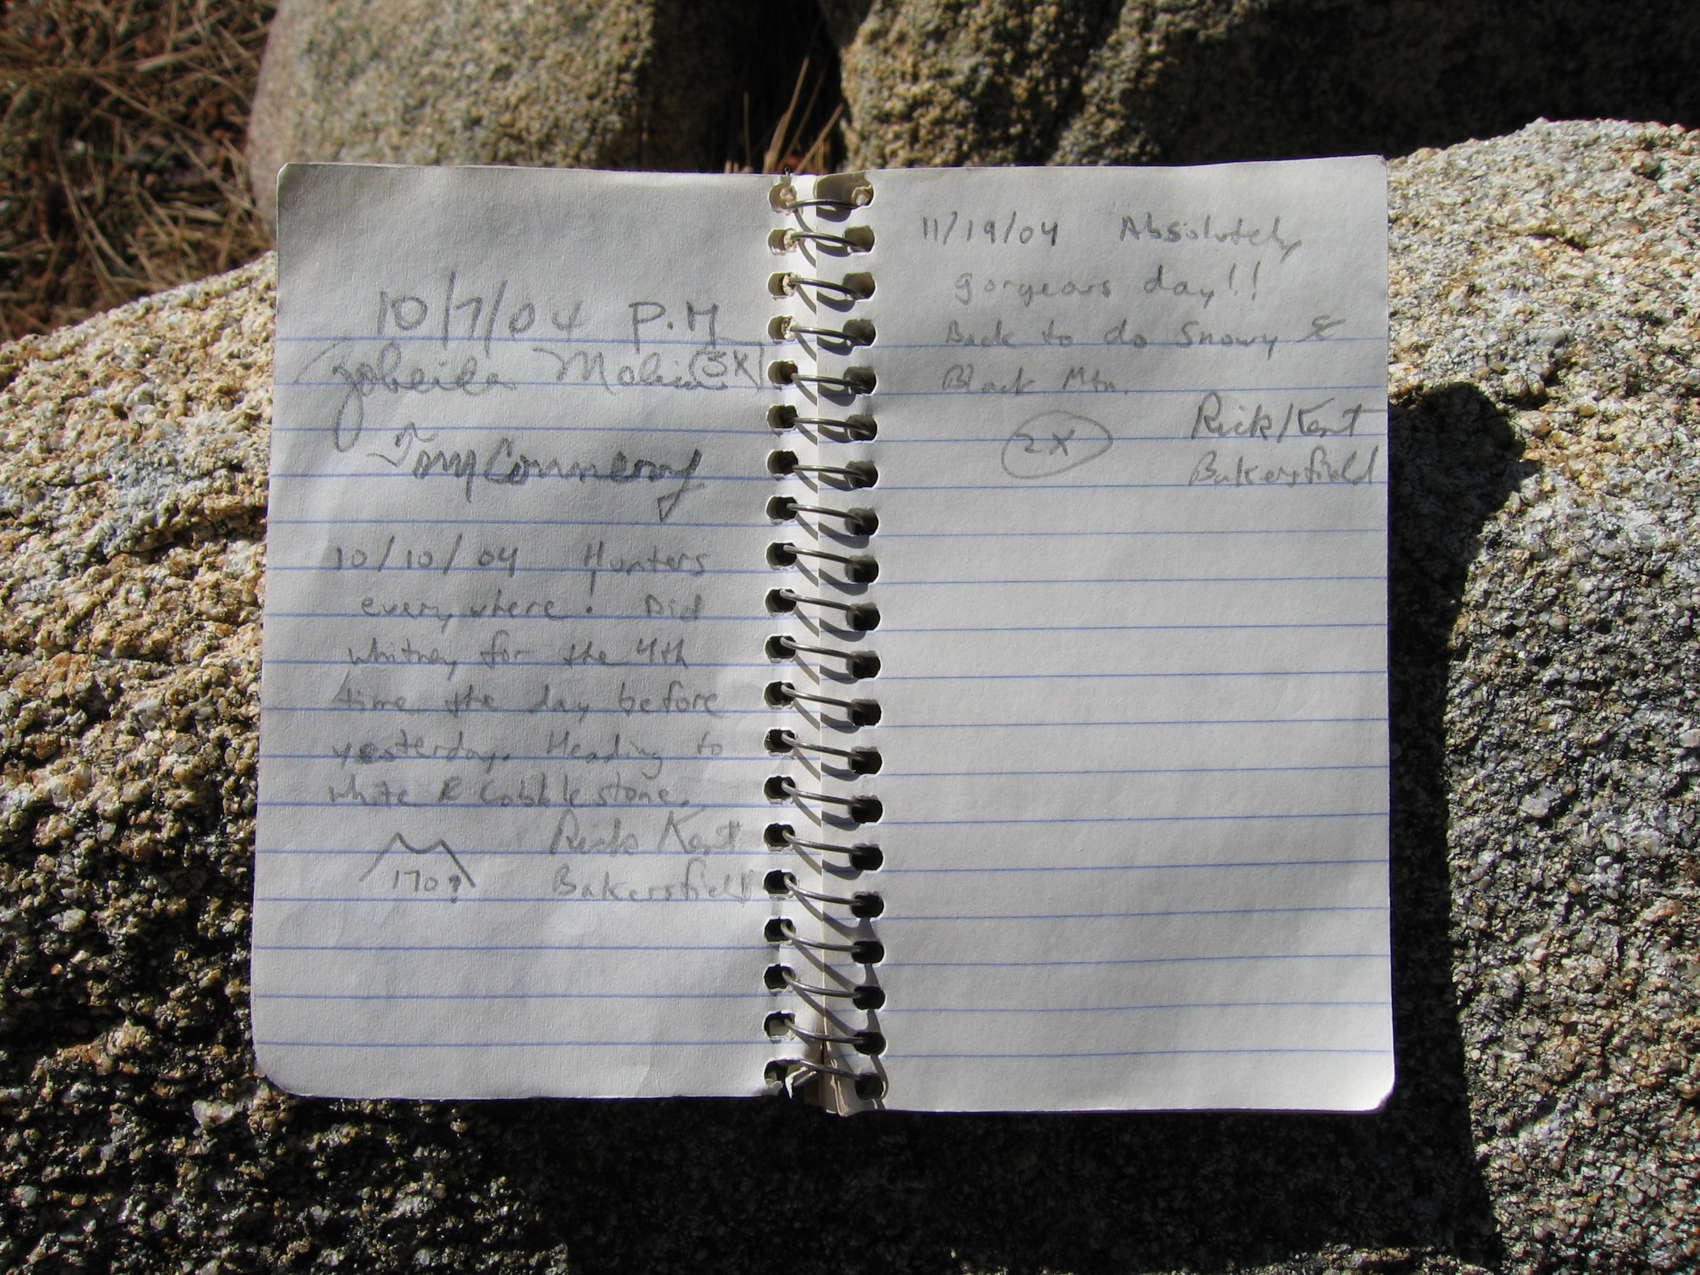 10/7/04 P.M
Zobeida Molina (3X)
Tony Connerny
10/10/04 Hunters
everywhere! Did
Whitney for the 4th
time the day before
yesterday. Heading to
White & Cobblestone.
Rick Kent
Bakersfield
11/19/04 Absolutely
gorgeous day!!
Back to do Snowy &
Black Mtn.
2X
Rick Kent
Bakersfield